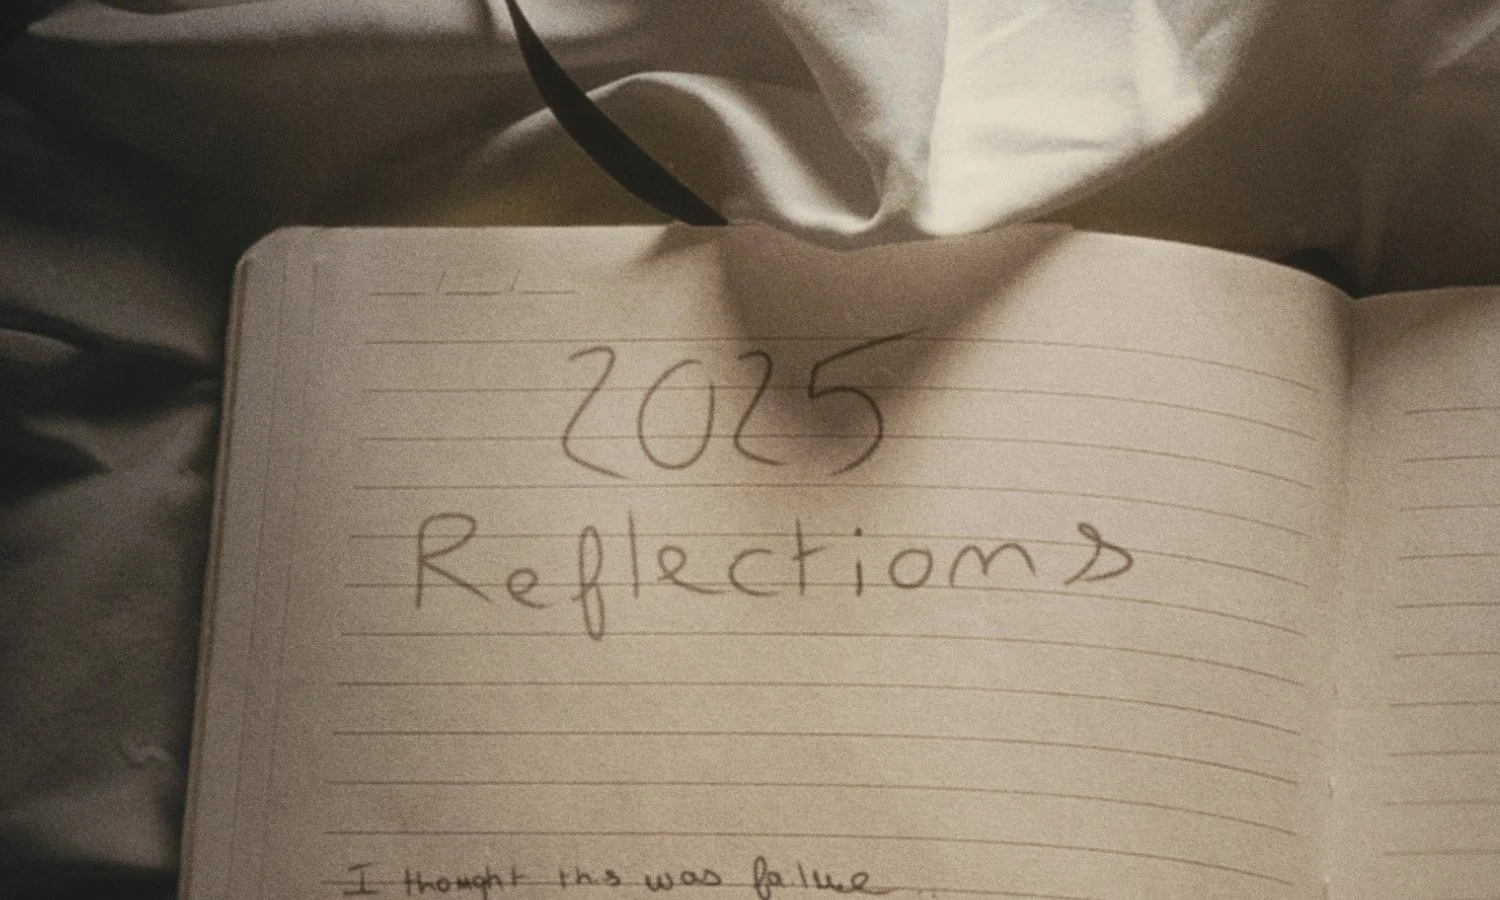 2025
Reflections
I thought this was failure